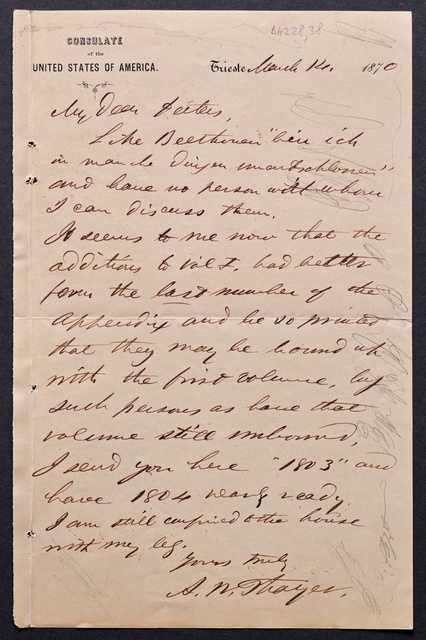 CONSULATE
of the
UNITED STATES OF AMERICA.
Trieste March 14. 1870
My Dear Deiters,
Like Beethoven "bin ich
in manche Dingen unentschlossen"
and have no person with whom
I can discuss them.
It seems to me now that the
additions to vol I. had better
form the last number of the
Appendix and be so printed
that they may be bound up
with the first volume, by
such persons as have that
volume still unbound.
I send you here "1803" and
have 1804 nearly ready
I am still confined to the house
with my leg.
Yours truly
A. W. Thayer.